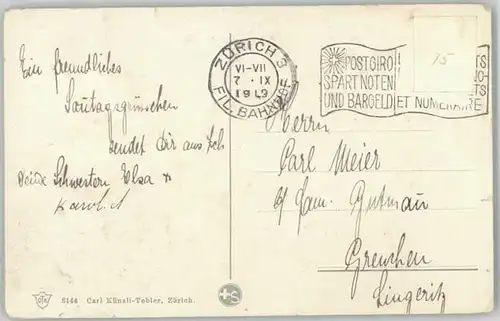 Ein freundliches
Sontagsgrüsschen
sendet dir aus Zch
Deine Schwestern Elsa +
ZÜRICH 3
VI-VII
7 · IX
19
FIL. BAHNHOF
POSTGIRO
SPART NOTEN
UND BARGELD
ET NUMÉRAIRE
15
Herrn
Carl Meier
b/ Fam. Gutmau
Grenchen
Lingeriz
5144 Carl Künzli-Tobler, Zürich.